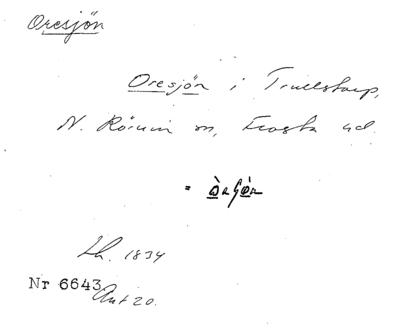 Oresjön
Oresjön i Trullstorp,
N. Rörum sn, Frosta hd.
Lh. 1834
Nr 6643
Ant 20.